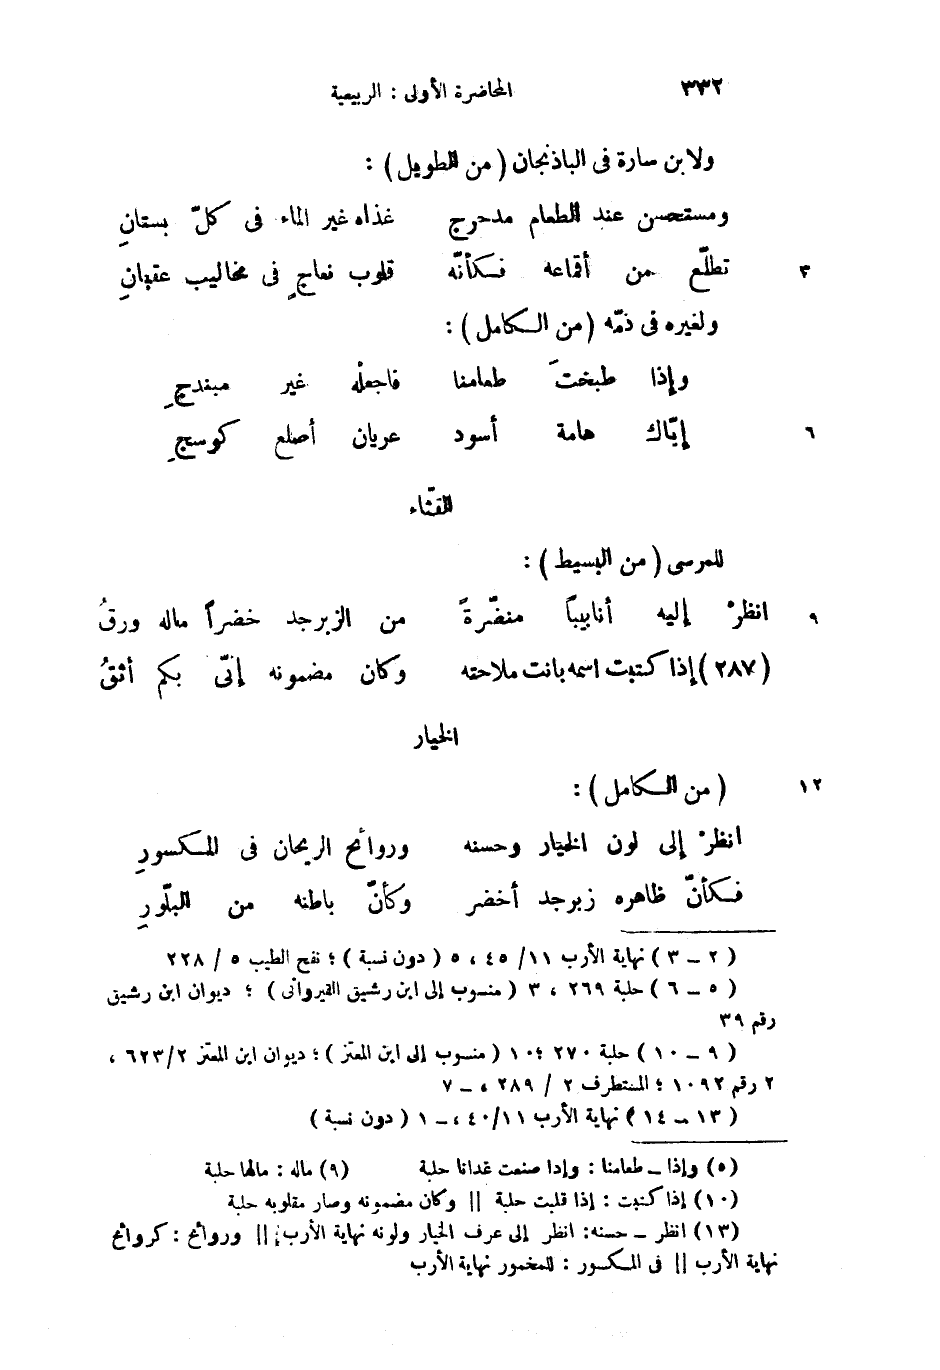 ٣٣٢ المحاضرة الأولى : الربيعية
ولابن سارة فى الباذنجان ( من الطويل ) :
ومستحسن عند الطعام مدحرج غذاه غير الماء فى كلّ بستانِ
٣ تطلّع من أقماعه فكأنّه قلوب نعاجٍ فى مخاليب عقبانِ
ولغيره فى ذمّه ( من الكامل ) :
وإذا طبختَ طعامنا فاجعلْه غير مبفدجِ
٦ إيّاك هامة أسود عريان أصلع كوسجِ
القثّاء
للمرسى ( من البسيط ) :
٩ انظرْ إليه أنابيباً منضّرةً من الزبرجد خضراً ماله ورقُ
(٢٨٧) إذا كتبت اسمه بانت ملاحته وكان مضمونه إنّى بكم أثقُ
الخيار
١٢ ( من الكامل ) :
انظرْ إلى لون الخيار وحسنه وروائح الريحان فى المكسورِ
فكأنّ ظاهره زبرجد أخضر وكأنّ باطنه من البلّورِ
( ٢ – ٣ ) نهاية الأرب ١١/ ٤٥ ، ٥ ( دون نسبة ) ؛ نفح الطيب ٥ / ٢٢٨
( ٥ – ٦ ) حلبة ٢٦٩ ، ٣ ( منسوب إلى ابن رشيق القيروانى ) ؛ ديوان ابن رشيق
رقم ٣٩
( ٩ – ١٠ ) حلبة ٢٧٠ ؛١٠ ( منسوب إلى ابن المعتز ) ؛ ديوان ابن المعتز ٦٢٣/٢ ،
٢ رقم ١٠٩٢ ؛ المستطرف ٢ / ٢٨٩ ، – ٧
( ١٣ – ١٤ ) نهاية الأرب ٤٠/١١ ، – ١ ( دون نسبة )
(٥) وإذا – طعامنا : وإدا صنعت غدانا حلبة (٩) ماله : مالها حلبة
(١٠) إذا كتبت : إذا قلبت حلبة || وكان مضمونه وصار مقلوبه حلبة
(١٣) انظر – حسنه: انظر إلى عرف الخيار ولونه نهاية الأرب؛ || وروائح : كروائح
نهاية الأرب || فى المكسور : للمخمور نهاية الأرب